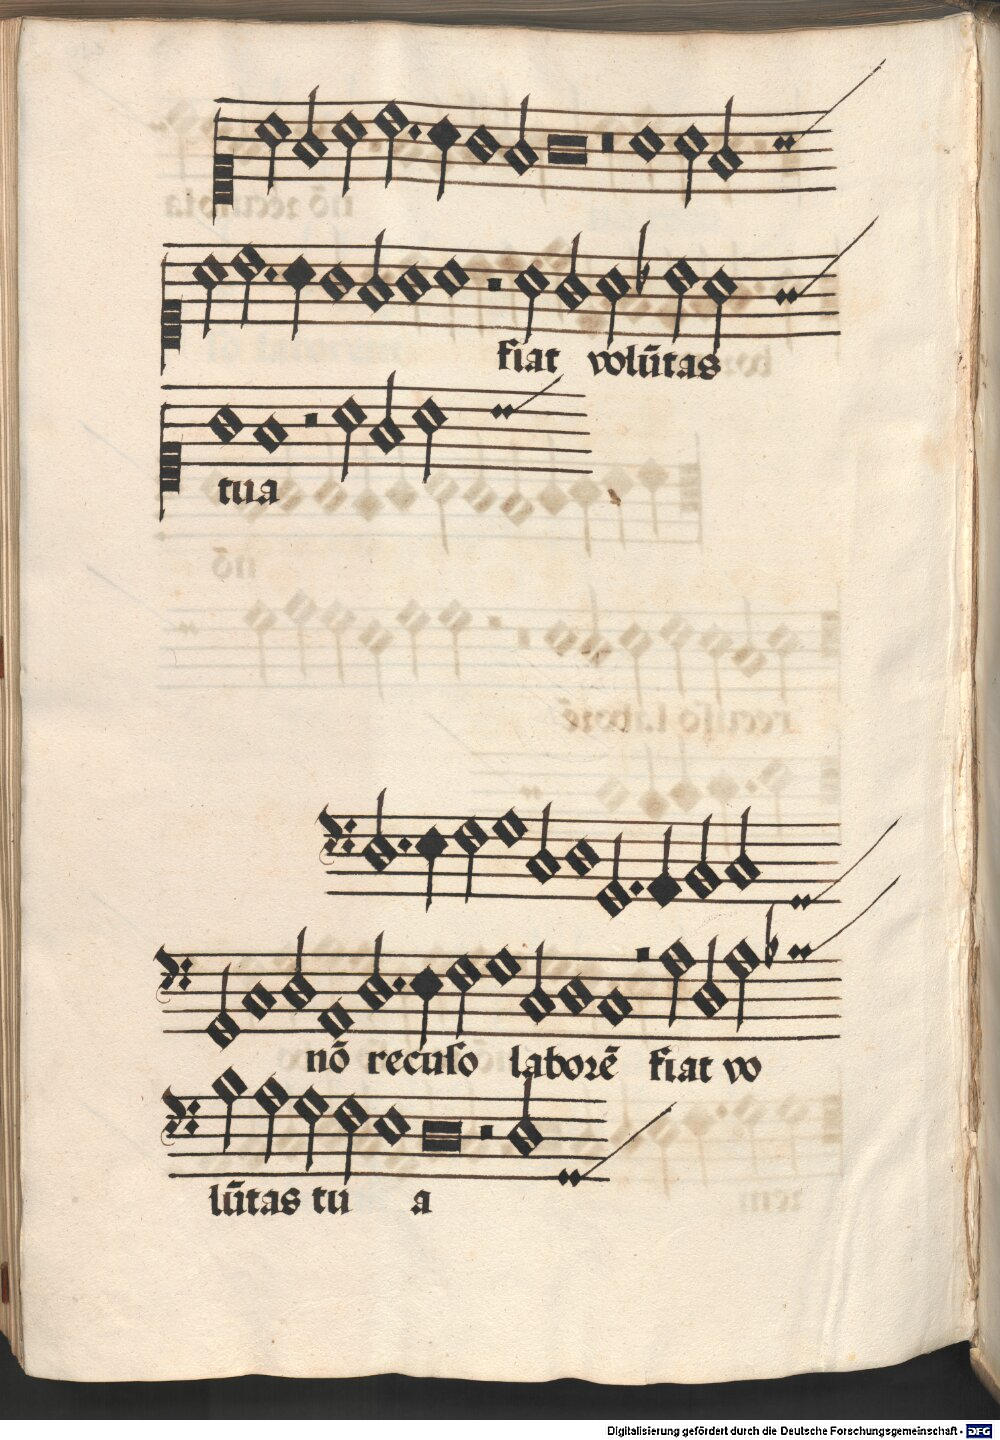 fiat volūtas
tua
nō recuso laborē fiat vo
lūtas tu a
Digitalisierung gefördert durch die Deutsche Forschungsgemeinschaft - DFG